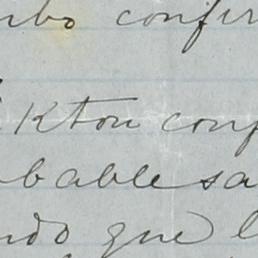 rbo confir
Kton conf
bable sa
ndo que l